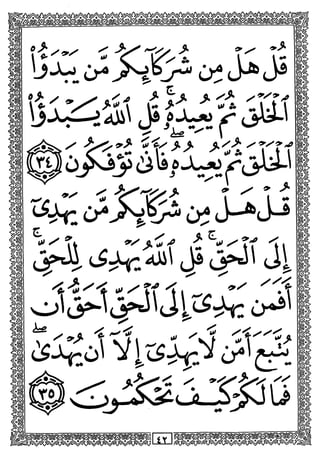 قُلْ هَلْ مِن شُرَكَآئِكُم مَّن يَبْدَؤُا۟
ٱلْخَلْقَ ثُمَّ يُعِيدُهُۥ ۚ قُلِ ٱللَّهُ يَبْدَؤُا۟
ٱلْخَلْقَ ثُمَّ يُعِيدُهُۥ ۖ فَأَنَّىٰ تُؤْفَكُونَ ٣٤
قُلْ هَلْ مِن شُرَكَآئِكُم مَّن يَهْدِىٓ
إِلَى ٱلْحَقِّ ۚ قُلِ ٱللَّهُ يَهْدِى لِلْحَقِّ ۗ
أَفَمَن يَهْدِىٓ إِلَى ٱلْحَقِّ أَحَقُّ أَن
يُتَّبَعَ أَمَّن لَّا يَهِدِّىٓ إِلَّآ أَن يُهْدَىٰ ۖ
فَمَا لَكُمْ كَيْفَ تَحْكُمُونَ ٣٥
٤٢